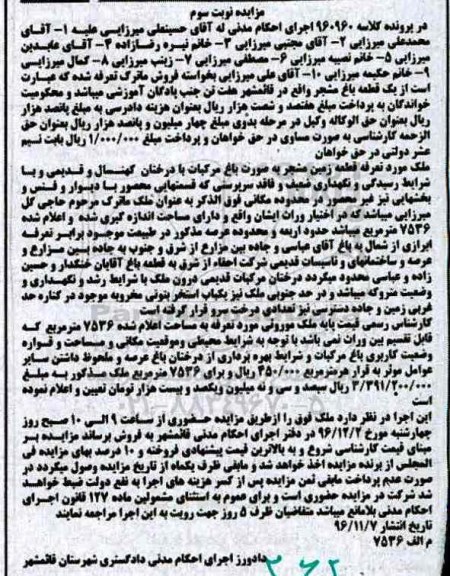 مزایده نوبت سوم
در پرونده کلاسه ۹۶۰۹۶۰ اجرای احکام مدنی له آقای حسینعلی میرزایی علیه ۱- آقای
محمدعلی میرزایی ۲- آقای مجتبی میرزایی ۳- خانم نیره رضازاده ۴- آقای عابدین
میرزایی ۵- خانم نصیبه میرزایی ۶- مصطفی میرزایی ۷- زینب میرزایی ۸- کمال میرزایی
۹- خانم حکیمه میرزایی ۱۰- آقای علی میرزایی بخواسته فروش ماترک تعرفه شده که عبارت
است از یک قطعه باغ مشجر واقع در قائمشهر هفت تن جنب یادگان آموزشی میباشد و محکومیت
خواندگان به پرداخت مبلغ هفتصد و شصت هزار ریال بعنوان هزینه دادرسی به مبلغ پانصد هزار
ریال بعنوان حق الوکاله وکیل در مرحله بدوی مبلغ چهار میلیون و پانصد هزار ریال بعنوان حق
الزحمه کارشناسی به صورت مساوی در حق خواهان و پرداخت مبلغ ۱/۰۰۰/۰۰۰ ریال بابت نیم
عشر دولتی در حق خواهان
ملک مورد تعرفه قطعه زمین مشجر به صورت باغ مرکبات با درختان کهنسال و قدیمی و با
شرایط رسیدگی و نگهداری ضعیف و فاقد سرپرستی که قسمتهایی محصور با دیوار و فنس و
بخشهایی نیز غیر محصور در محدوده مکانی فوق الذکر به عنوان ملک ماترک مرحوم حاجی گل
میرزایی میباشد که در اختیار وراث ایشان واقع و دارای مساحت اندازه گیری شده و اعلام شده
۷۵۳۶ مترمربع میباشد حدود اربعه و محدوده عرصه مذکور در طبیعت موجود برابر تعرفه
ابرازی از شمال به باغ آقای عباسی و جاده بین مزارع از شرق و جنوب به جاده بین مزارع و
عرصه و ساختمانهای و تاسیسات قدیمی شرکت احفاء از شرق به قطعه باغ آقایان خنکدار و حسین
زاده و عباسی محدود میگردد درختان مرکبات قدیمی درون ملک با شرایط رشد و نگهداری و
وضعیت متروکه میباشد و در حد جنوبی ملک نیز یکباب استخر بتونی مخروبه موجود در کناره حد
غربی زمین و جاده دسترسی نیز تعدادی درخت سرو قرار گرفته است
کارشناس رسمی قیمت پایه ملک موروثی مورد تعرفه به مساحت اعلام شده ۷۵۳۶ مترمربع که
قابل تقسیم بین وراث نمی باشد با توجه به شرایط محیطی وموقعیت مکانی و مساحت و قواره
وضعیت کاربری باغ مرکبات و شرایط بهره برداری از درختان باغ عرصه و ملحوظ داشتن سایر
عوامل موثر به قرار هرمترمربع ۴۵۰/۰۰۰ ریال و برای ۷۵۳۶ مترمربع ملک مذکور به مبلغ
۳/۳۹۱/۲۰۰/۰۰۰ ریال سیصد و سی و نه میلیون ویکصد و بیست هزار تومان تعیین و اعلام نموده
است
این اجرا در نظر دارد ملک فوق را ازطریق مزایده حضوری از ساعت ۹ الی ۱۰ صبح روز
چهارشنبه مورخ ۹۶/۱۲/۲ در دفتر اجرای احکام مدنی قائمشهر به فروش برساند مزایده بر
مبنای قیمت کارشناسی شروع و به بالاترین قیمت پیشنهادی فروخته و ۱۰ درصد بهای مزایده فی
المجلس از برنده مزایده اخذ خواهد شد و مابقی ظرف یکماه از تاریخ مزایده وصول میگردد در
صورت عدم پرداخت مابقی ثمن مزایده پس از کسر هزینه های اجرا به نفع دولت ضبط خواهد
شد شرکت در مزایده حضوری است و برای عموم به استثنای مشمولین ماده ۱۲۷ قانون اجرای
احکام مدنی بلامانع میباشد متقاضیان ظرف ۵ روز جهت رویت به این اجرا مراجعه نمایند
تاریخ انتشار ۹۶/۱۱/۷
م الف ۷۵۳۶
دادورز اجرای احکام مدنی دادگستری شهرستان قائمشهر